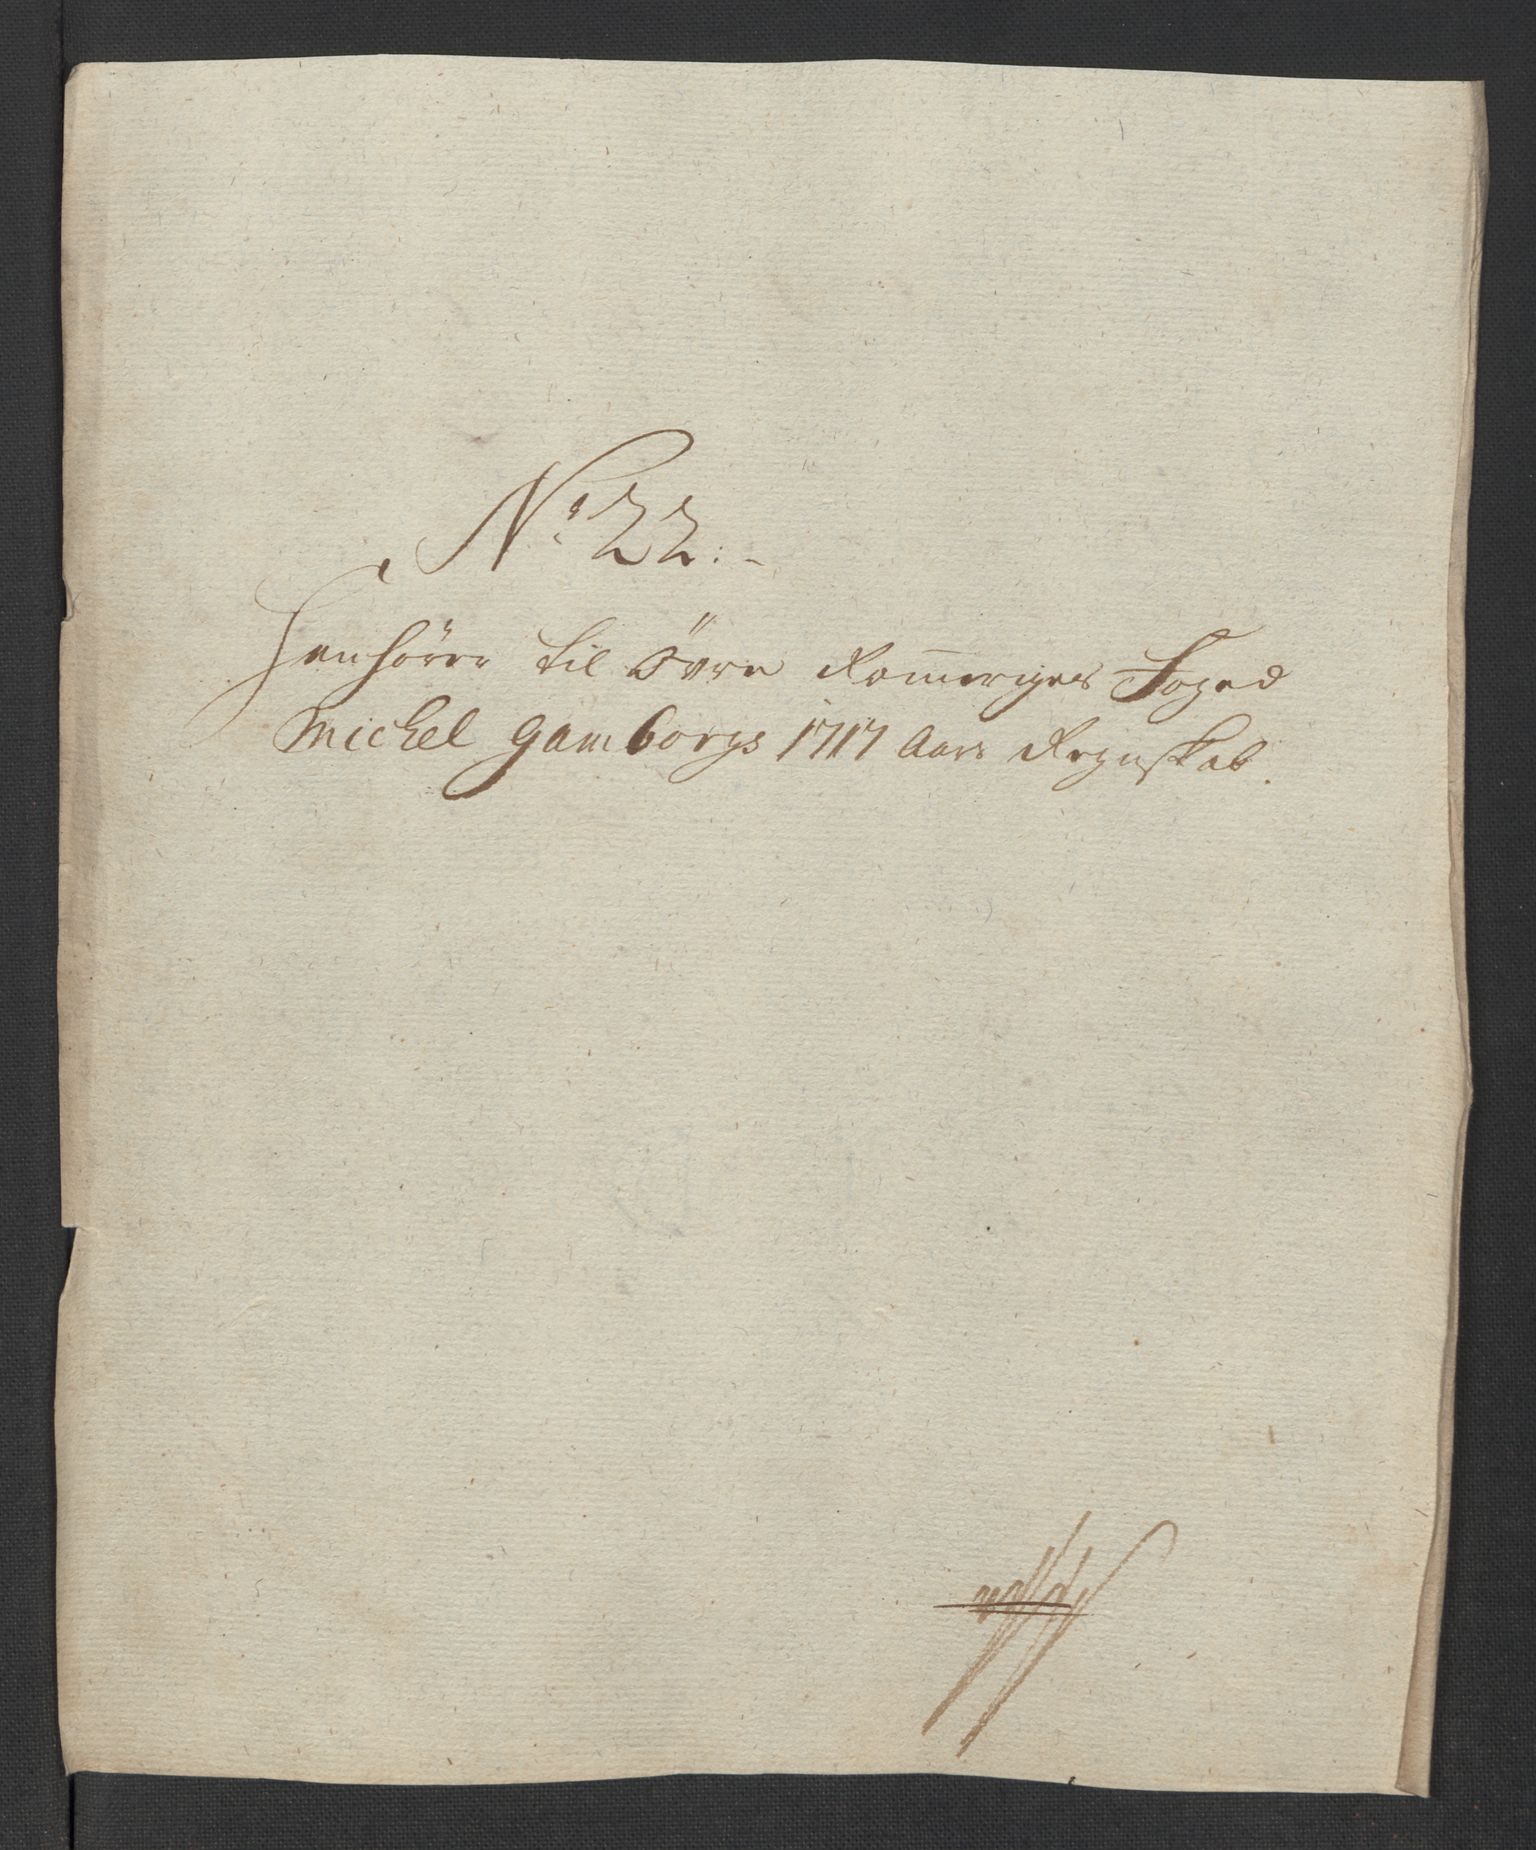 No: 22:-
Henhörer til Öfre Rom̅eriges Foged
Michel Gamborgs 1717 Aars Regnskab.